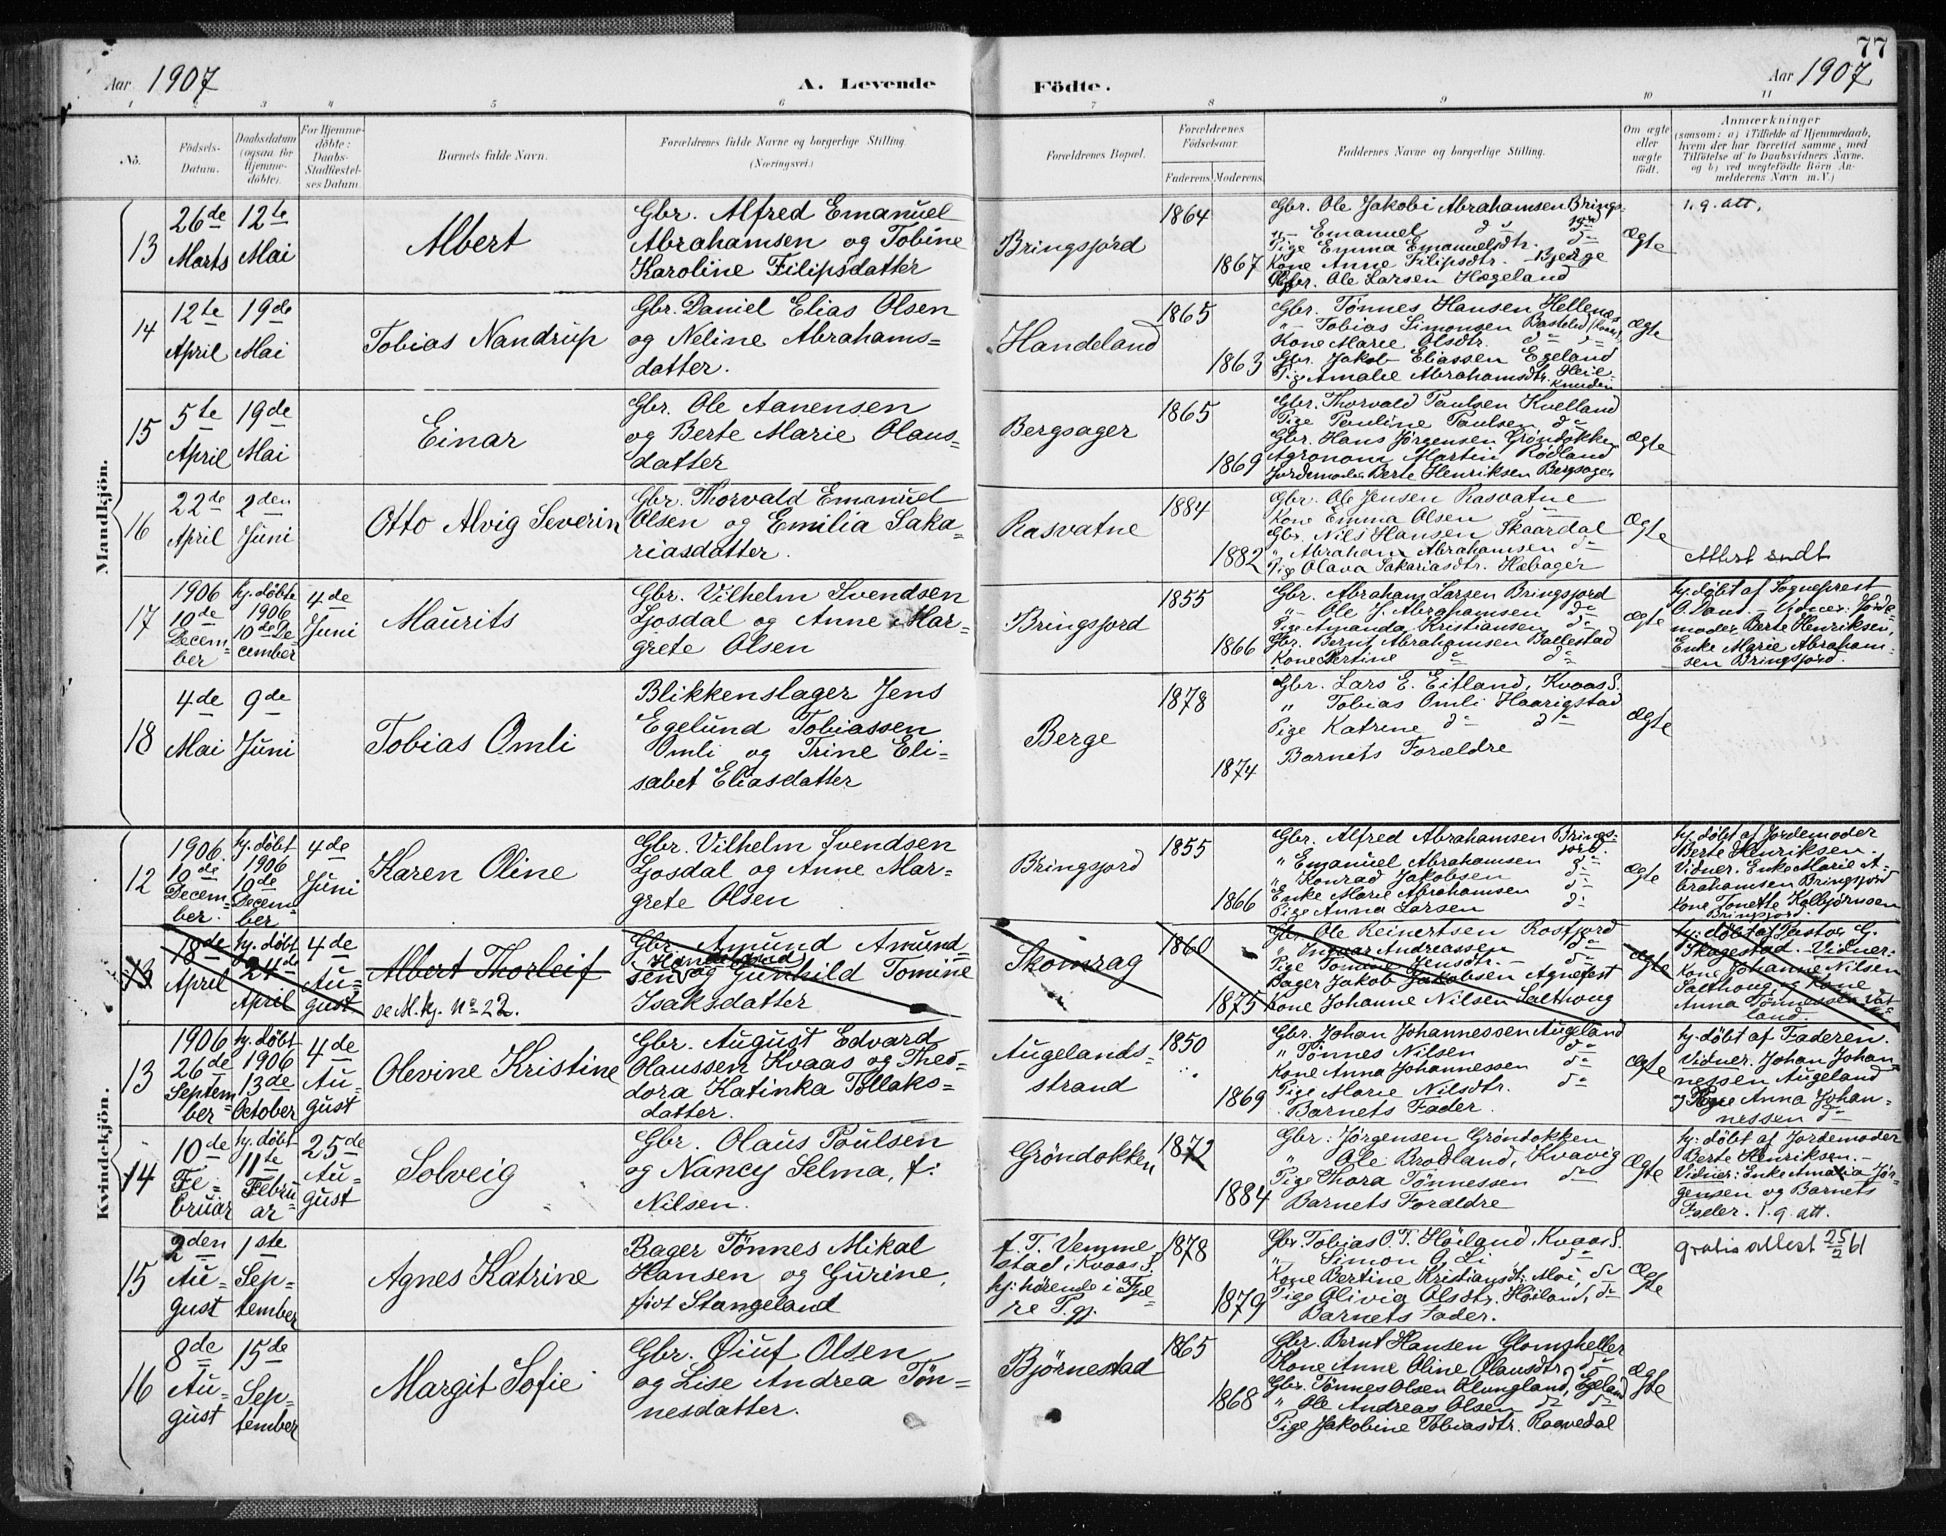 77
Aar 1907
A. Levende
Födte.
Aar 1907
1 2 3 4 5 6 7 8 9 10 11
No.
Födsels-Datum.
Daabsdatum (ogsaa for Hjemme-döbte).
For Hjemme-döbte: Daabs-Stadfæstel-ses Datum.
Barnets fulde Navn.
Forældrenes fulde Navne og borgerlige Stilling. (Næringsvei.)
Forældrenes Bopæl.
Forældrenes Födselsaar.
Faderens. Moderens.
Faddernes Navne og borgerlige Stilling.
Om ægte eller uægte födt.
Anmærkninger
(saasom: a) i Tilfælde af Hjemmedaab,
hvem der har forrettet samme, med
Tilföielse af to Daabsvidners Navne,
og b) ved uægtefödte Börn An-
melderens Navn m. V.)
Mandkjön.
13
26de Marts
12te Mai
Albert
Gbr. Alfred Emanuel
Abrahamsen og Tobine
Karoline Filipsdatter
Bringsjord
1864
1867
Gbr. Ole Jakobi Abrahamsen Brings-
jord
"- Emanuel do do
Pige Emma Emanuelsdtr. do
Kone Anne Filipsdtr. Bjerge
Gbr. Ole Larsen Hægeland
Ægte
1. g. att.
14
12te April
19de Mai
Tobias Nandrup
Gbr. Daniel Elias Olsen
og Neline Abrahams-
datter.
Handeland
1865
1863
Gbr. Tønnes Hansen Hellenes
"- Tobias Simonsen Bastelid (Kvaas)
Kone Marie Olsdtr. do do
Gbr. Jakob Eliassen Egeland
Pige Amalie Abrahamsdtr. Heie-
Knuden
Ægte
15
5te April
19de Mai
Einar
Gbr. Ole Aanensen
og Berte Marie Olaus-
datter
Bergsager
1865
1869
Gbr. Thorvald Paulsen Kvelland
Pige Pauline Paulsen do
Gbr. Hans Jørgensen Grøndokken
Agronom Martin Rødland
Jordemoder Berte Henriksen Bergsager
Ægte
16
22de April
2den Juni
Otto Alvig Severin
Gbr. Thorvald Emanuel
Olsen og Emilia Saka-
riasdatter.
Rasvatne
1884
1882
Gbr. Ole Jensen Rasvatne
Kone Emma Olsen do
Gbr. Nils Hansen Skaardal
" Abraham Abrahamsen do
Pige Olava Sakariasdtr. Hæbager
Ægte
Attest sendt
17
1906 10de Decem-ber
hj. døbt 1906 10de De-cember
4de Juni
Maurits
Gbr. Vilhelm Svendsen
Ljosdal og Anne Mar-
grete Olsen
Bringsjord
1855
1866
Gbr. Abraham Larsen Bringsjord
"- Ole J. Abrahamsen do
Pige Amanda Kristiansen do
Gbr. Bernt Abrahamsen Ballestad
Kone Bertine do do
Ægte
hj. døbt af Sogneprest
O. Dans. - Vidner: Jorde-
moder Berte Henriksen,
Enke Marie Abraham-
sen Bringsjord.
18
4de Mai
9de Juni
Tobias Omli
Blikkenslager Jens
Egelund Tobiassen
Omli og Trine Eli-
sabet Eliasdatter
Berge
1878
1874
Gbr. Lars E. Eitland, Kvaas S.
" Tobias Omli Haarigstad
Pige Katrine do do
Barnets Forældre
Ægte
Kvindekjön.
12
1906. 10de Decem-ber.
hj. døbt 1906 10de Decem-ber
4de Juni
Karen Oline
Gbr. Vilhelm Svendsen
Ljosdal og Anne Mar-
grete Olsen
Bringsjord
1855
1866
Gbr. Alfred Abrahamsen Brings-
jord
" Emanuel Abrahamsen do
" Konrad Jakobsen do
Enke Marie Abrahamsen do
Pige Anna Larsen
ægte
hj. døbt af Jordemoder
Berte Henriksen.
Vidner: Enke Marie A-
brahamsen Bringsjord
Kone Tonette Kolbjørnsen
Bringsjord.
13
18de April
hj. døbt 21de April
4de Au-gust
Albert Thorleif
se M.kj. No 22.
Gbr. Amund Amund-
sen og Gunhild Tomine
Isaksdatter
Skomrag
1860
1875
Gbr. Ole Reinertsen Rosfjord
" Ingvar Andreassen do
Pige Tomine Jensdtr. do
Bager Jakob Jakobsen Agnefest
Kone Johanne Nilsen Salthoug
ægte
hj. døbt af Pastor G.
Skagestad. Vidner:
Kone Johanne Nilsen
Salthoug og Kone
Anna Tønnessen Vat-
land.
13
1906 26de Septem-ber
hj. døbt 1906 13de October
4de Au-gust
Olevine Kristine
Gbr. August Edvard
Olaussen Kvaas og Theo-
dora Katinka Tollaks-
datter.
Augelands-
strand
1850
1869
Gbr. Johan Johannessen Augeland
" Tønnes Nilsen do
Kone Anna Johannessen do
Pige Marie Nilsdtr. do
Barnets Fader.
ægte
hj. døbt af Faderen.
Vidner: Johan Johan-
nessen Augeland
og Pige Anna Johan-
nessen do
14
10de Fe-bruar
hj. døbt 11te Febru-ar
25de Au-gust
Solveig
Gbr. Olaus Poulsen
og Nancy Selma, f:
Nilsen.
Grøndokken
1872
1884
Gbr: Jørgensen Grøndokken
" Ole Brodland, Kvavig
Pige Thora Tønnessen do
Barnets Forældre
Ægte
hj: døbt af Jordemoder
Berte Henriksen.-
Vidner: Enke Amalia Jør-
gensen og Barnets
Fader. 1. g. att.
15
2den Au-gust
1ste Sep-tember
Agnes Katrine
Bager Tønnes Mikal
Hansen og Gurine,
født Stangeland
f. T. Vemme-
stad, Kvaas S.
hj: hørende i Fjæ-
re P. gj.
1878
1879
Gbr. Tobias O. T. Høiland, Kvaas S.
" Simon O. Li do
Kone Bertine Kristiansdtr. Moi, do
Pige Olivia Olsdtr. Høiland, do
Barnets Fader.
Ægte
gratis attest 25/2 61
16
8de Au-gust
15de Sep-tember
Margit Sofie
Gbr. Øiuf Olsen
og Lise Andrea Tøn-
nesdatter.
Bjørnestad
1865
1868
Gbr. Bernt Hansen Glomsheller
Kone Anne Oline Olausdtr. do
Gbr. Tønnes Olsen Klungland, Egeland
" Ole Andreas Olsen do do
Pige Jakobine Tobiasdtr. Rosvedal
Ægte